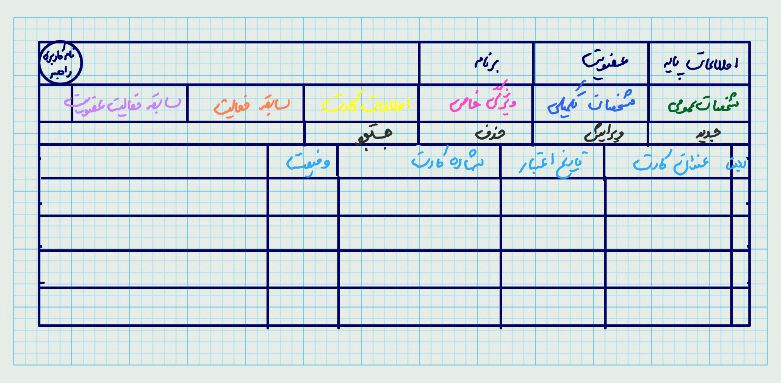 اطلاعات پایه عضویت برنامه نام کاربری راهبر
مشخصات عمومی مشخصات تکمیلی ویژگی خاص اطلاعات کارت سابقه فعالیت سابقه فعالیت عضویت
جدید ویرایش حذف جستجو
ردیف عنوان کارت تاریخ اعتبار شماره کارت وضعیت